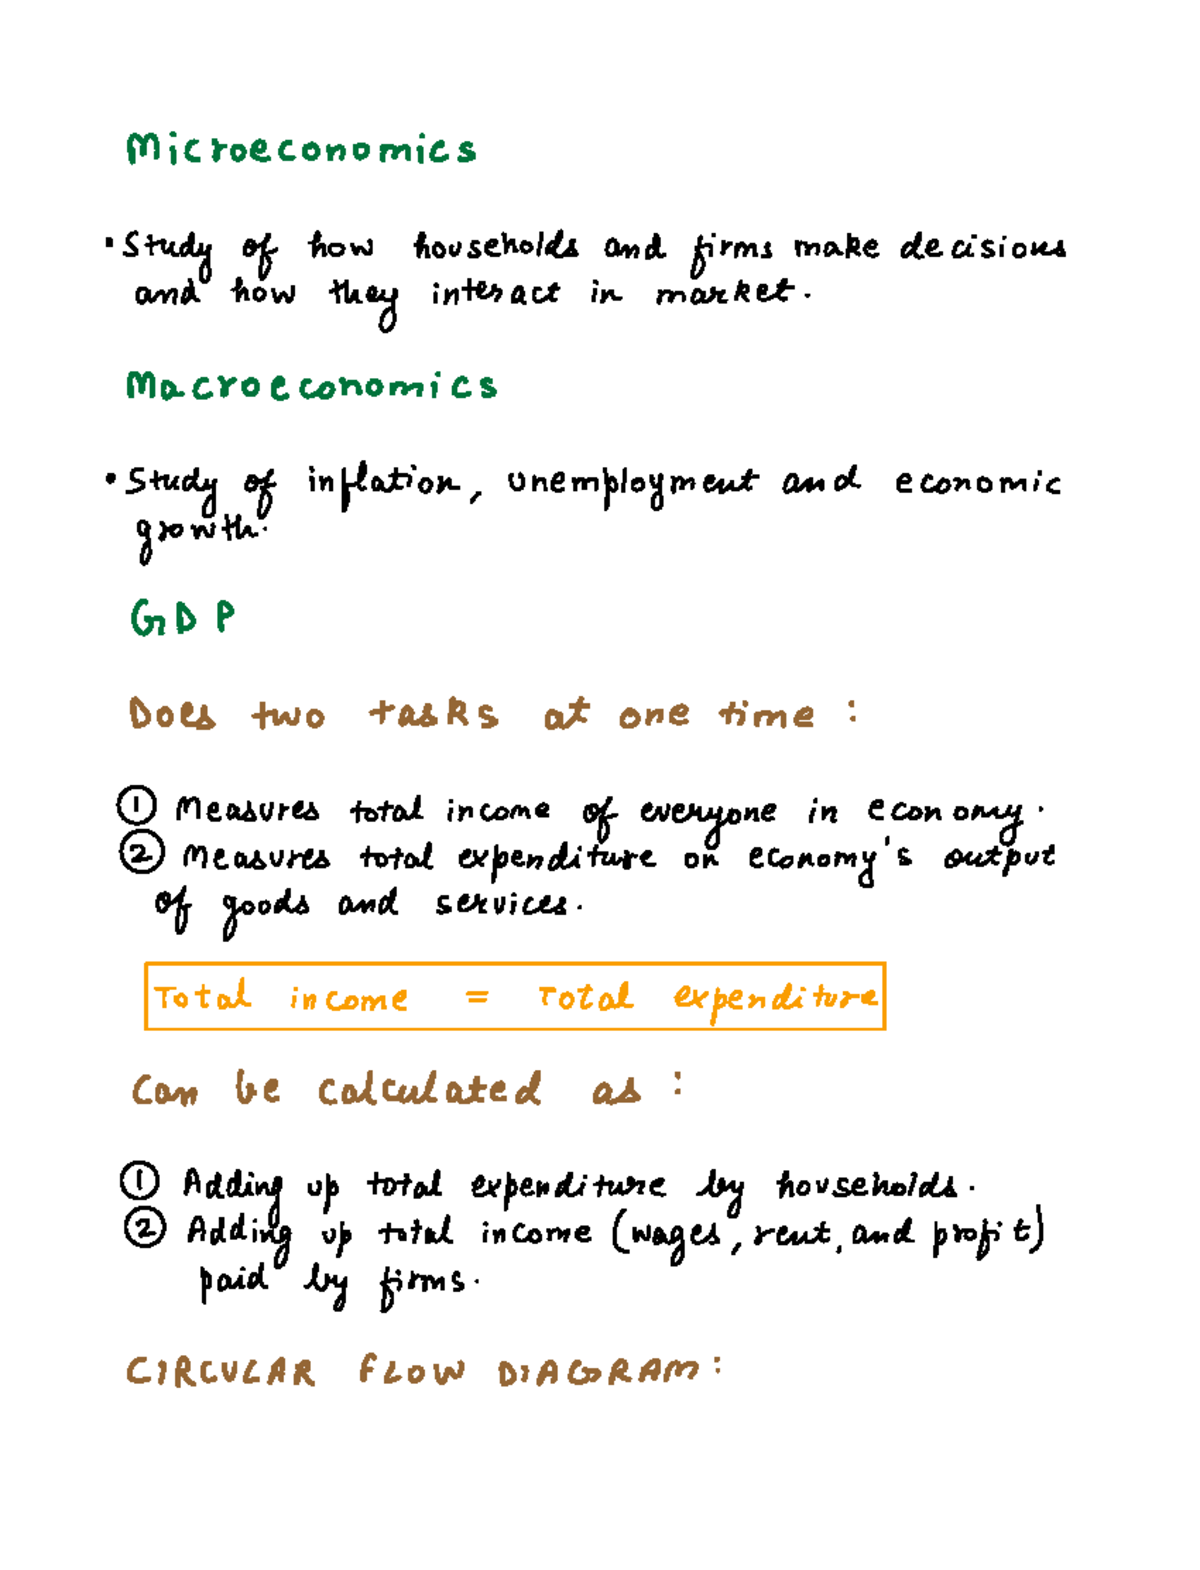 Microeconomics
• Study of how households and firms make decisions
and how they interact in market.
Macroeconomics
• Study of inflation, unemployment and economic
growth.
GDP
Does two tasks at one time :
① Measures total income of everyone in economy.
② Measures total expenditure on economy's output
of goods and services.
Total income = Total expenditure
Can be calculated as :
① Adding up total expenditure by households.
② Adding up total income (wages, rent, and profit)
paid by firms.
CIRCULAR FLOW DIAGRAM: